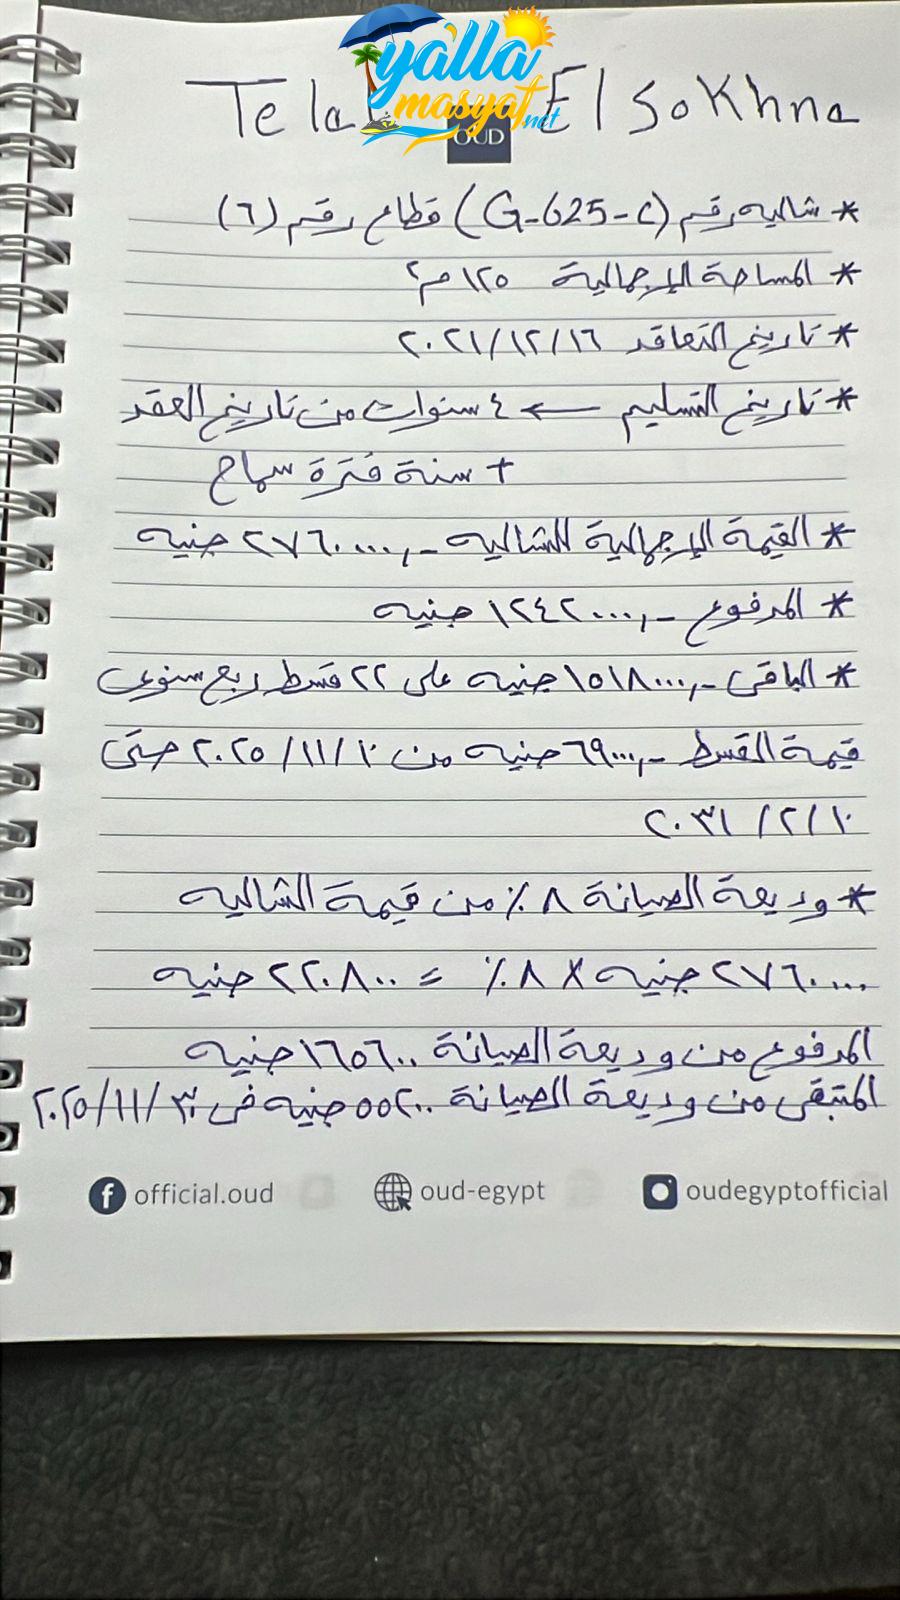 yalla
masyaf.net
Telal El Sokhna
OUD
* شاليه رقم (G-625-C) قطاع رقم (٦)
* المساحة الإجمالية ١٢٥ م٢
* تاريخ التعاقد ٢٠٢١/١٢/١٦
* تاريخ التسليم ← ٤ سنوات من تاريخ العقد
+ سنة فترة سماح
* القيمة الإجمالية للشاليه ـ,٢٧٦٠٠٠٠ جنيه
* المدفوع ـ,١٢٤٢٠٠٠ جنيه
* الباقى ـ,١٥١٨٠٠٠ جنيه على ٢٢ قسط ربع سنوى
قيمة القسط ـ,٦٩٠٠٠ جنيه من ٢٠٢٥/١١/١٠ حتى
٢٠٣١/٢/١٠
* وديعة الصيانة ٨٪ من قيمة الشاليه
٢٧٦٠٠٠٠ جنيه × ٨٪ = ٢٢٠٨٠٠ جنيه
المدفوع من وديعة الصيانة ١٦٥٦٠٠ جنيه
المتبقى من وديعة الصيانة ٥٥٢٠٠ جنيه فى ٢٠٢٥/١١/٣٠
official.oud oud-egypt oudegyptofficial